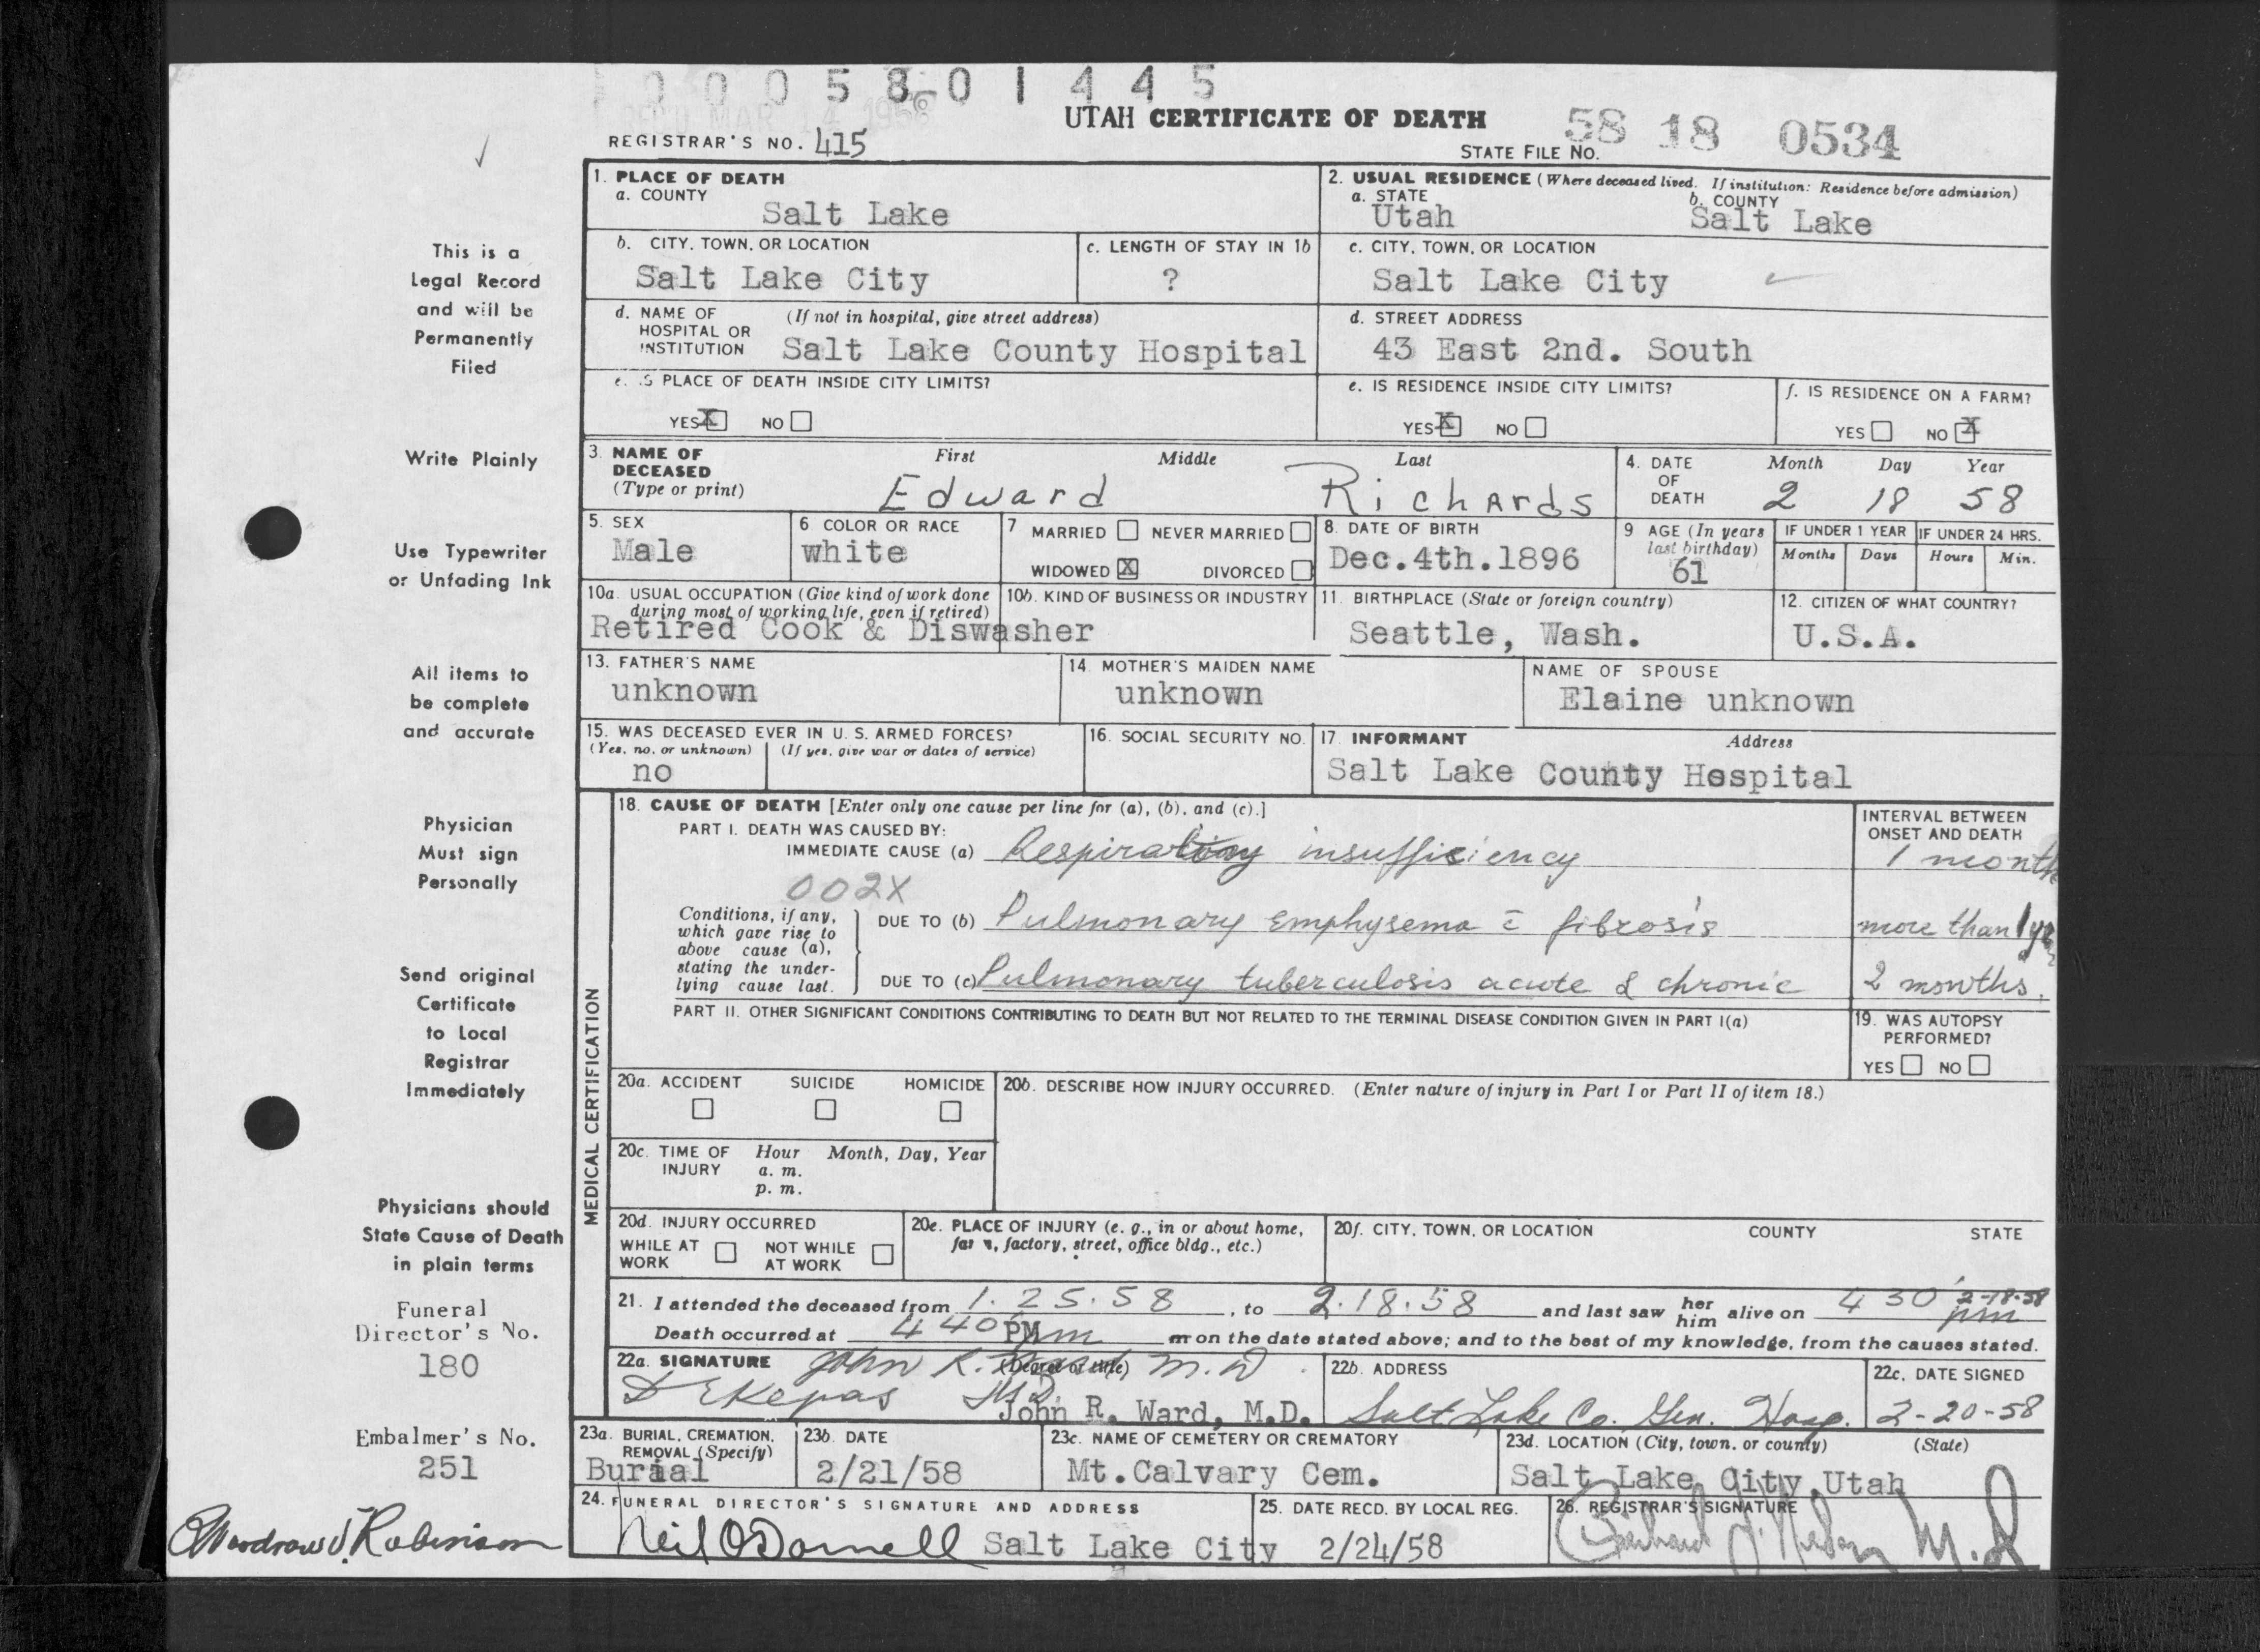 0005801445
REC'D MAR 14 1958
UTAH CERTIFICATE OF DEATH
REGISTRAR'S NO. 415
STATE FILE NO. 58 18 0534
This is a
Legal Record
and will be
Permanently
Filed
Write Plainly
Use Typewriter
or Unfading Ink
All items to
be complete
and accurate
Physician
Must sign
Personally
Send original
Certificate
to Local
Registrar
Immediately
Physicians should
State Cause of Death
in plain terms
Funeral
Director's No.
180
Embalmer's No.
251
Woodrow J. Robinson
1. PLACE OF DEATH
a. COUNTY
Salt Lake
2. USUAL RESIDENCE (Where deceased lived. If institution: Residence before admission)
a. STATE b. COUNTY
Utah Salt Lake
b. CITY, TOWN, OR LOCATION
Salt Lake City
c. LENGTH OF STAY IN 1b
?
c. CITY, TOWN, OR LOCATION
Salt Lake City
d. NAME OF HOSPITAL OR INSTITUTION (If not in hospital, give street address)
Salt Lake County Hospital
d. STREET ADDRESS
43 East 2nd. South
e. IS PLACE OF DEATH INSIDE CITY LIMITS?
YES X NO
e. IS RESIDENCE INSIDE CITY LIMITS?
YES X NO
f. IS RESIDENCE ON A FARM?
YES NO X
3. NAME OF DECEASED (Type or print)
First Middle Last
Edward Richards
4. DATE OF DEATH
Month Day Year
2 18 58
5. SEX
Male
6 COLOR OR RACE
white
7 MARRIED NEVER MARRIED
WIDOWED X DIVORCED
8. DATE OF BIRTH
Dec.4th.1896
9 AGE (In years last birthday)
61
IF UNDER 1 YEAR IF UNDER 24 HRS.
Months Days Hours Min.
10a. USUAL OCCUPATION (Give kind of work done during most of working life, even if retired)
Retired Cook & Diswasher
10b. KIND OF BUSINESS OR INDUSTRY
11. BIRTHPLACE (State or foreign country)
Seattle, Wash.
12. CITIZEN OF WHAT COUNTRY?
U.S.A.
13. FATHER'S NAME
unknown
14. MOTHER'S MAIDEN NAME
unknown
NAME OF SPOUSE
Elaine unknown
15. WAS DECEASED EVER IN U. S. ARMED FORCES?
(Yes, no, or unknown) (If yes, give war or dates of service)
no
16. SOCIAL SECURITY NO.
17. INFORMANT Address
Salt Lake County Hospital
MEDICAL CERTIFICATION
18. CAUSE OF DEATH [Enter only one cause per line for (a), (b), and (c).]
PART I. DEATH WAS CAUSED BY:
IMMEDIATE CAUSE (a) Respiratory insufficiency
INTERVAL BETWEEN
ONSET AND DEATH
1 month
002X
Conditions, if any, which gave rise to above cause (a), stating the underlying cause last.
DUE TO (b) Pulmonary Emphysema c̄ fibrosis
more than 1 yr
DUE TO (c) Pulmonary tuberculosis acute & chronic
2 months.
PART II. OTHER SIGNIFICANT CONDITIONS CONTRIBUTING TO DEATH BUT NOT RELATED TO THE TERMINAL DISEASE CONDITION GIVEN IN PART I(a)
19. WAS AUTOPSY
PERFORMED?
YES NO
20a. ACCIDENT SUICIDE HOMICIDE
20b. DESCRIBE HOW INJURY OCCURRED. (Enter nature of injury in Part I or Part II of item 18.)
20c. TIME OF INJURY Hour Month, Day, Year
a. m.
p. m.
20d. INJURY OCCURRED
WHILE AT WORK NOT WHILE AT WORK
20e. PLACE OF INJURY (e. g., in or about home, farm, factory, street, office bldg., etc.)
20f. CITY, TOWN, OR LOCATION COUNTY STATE
21. I attended the deceased from 1.25.58, to 2.18.58 and last saw her him alive on 4 30 pm 2-18-58
Death occurred at 4 40 PM pm m on the date stated above; and to the best of my knowledge, from the causes stated.
22a. SIGNATURE (Degree or title)
John R. Ward M.D.
D E Kepas M.D.
John R. Ward, M.D.
22b. ADDRESS
Salt Lake Co. Gen. Hosp.
22c. DATE SIGNED
2-20-58
23a. BURIAL, CREMATION, REMOVAL (Specify)
Burial
23b. DATE
2/21/58
23c. NAME OF CEMETERY OR CREMATORY
Mt.Calvary Cem.
23d. LOCATION (City, town, or county) (State)
Salt Lake City,Utah
24. FUNERAL DIRECTOR'S SIGNATURE AND ADDRESS
Neil O'Donnell Salt Lake City
25. DATE RECD. BY LOCAL REG.
2/24/58
26. REGISTRAR'S SIGNATURE
M.D.